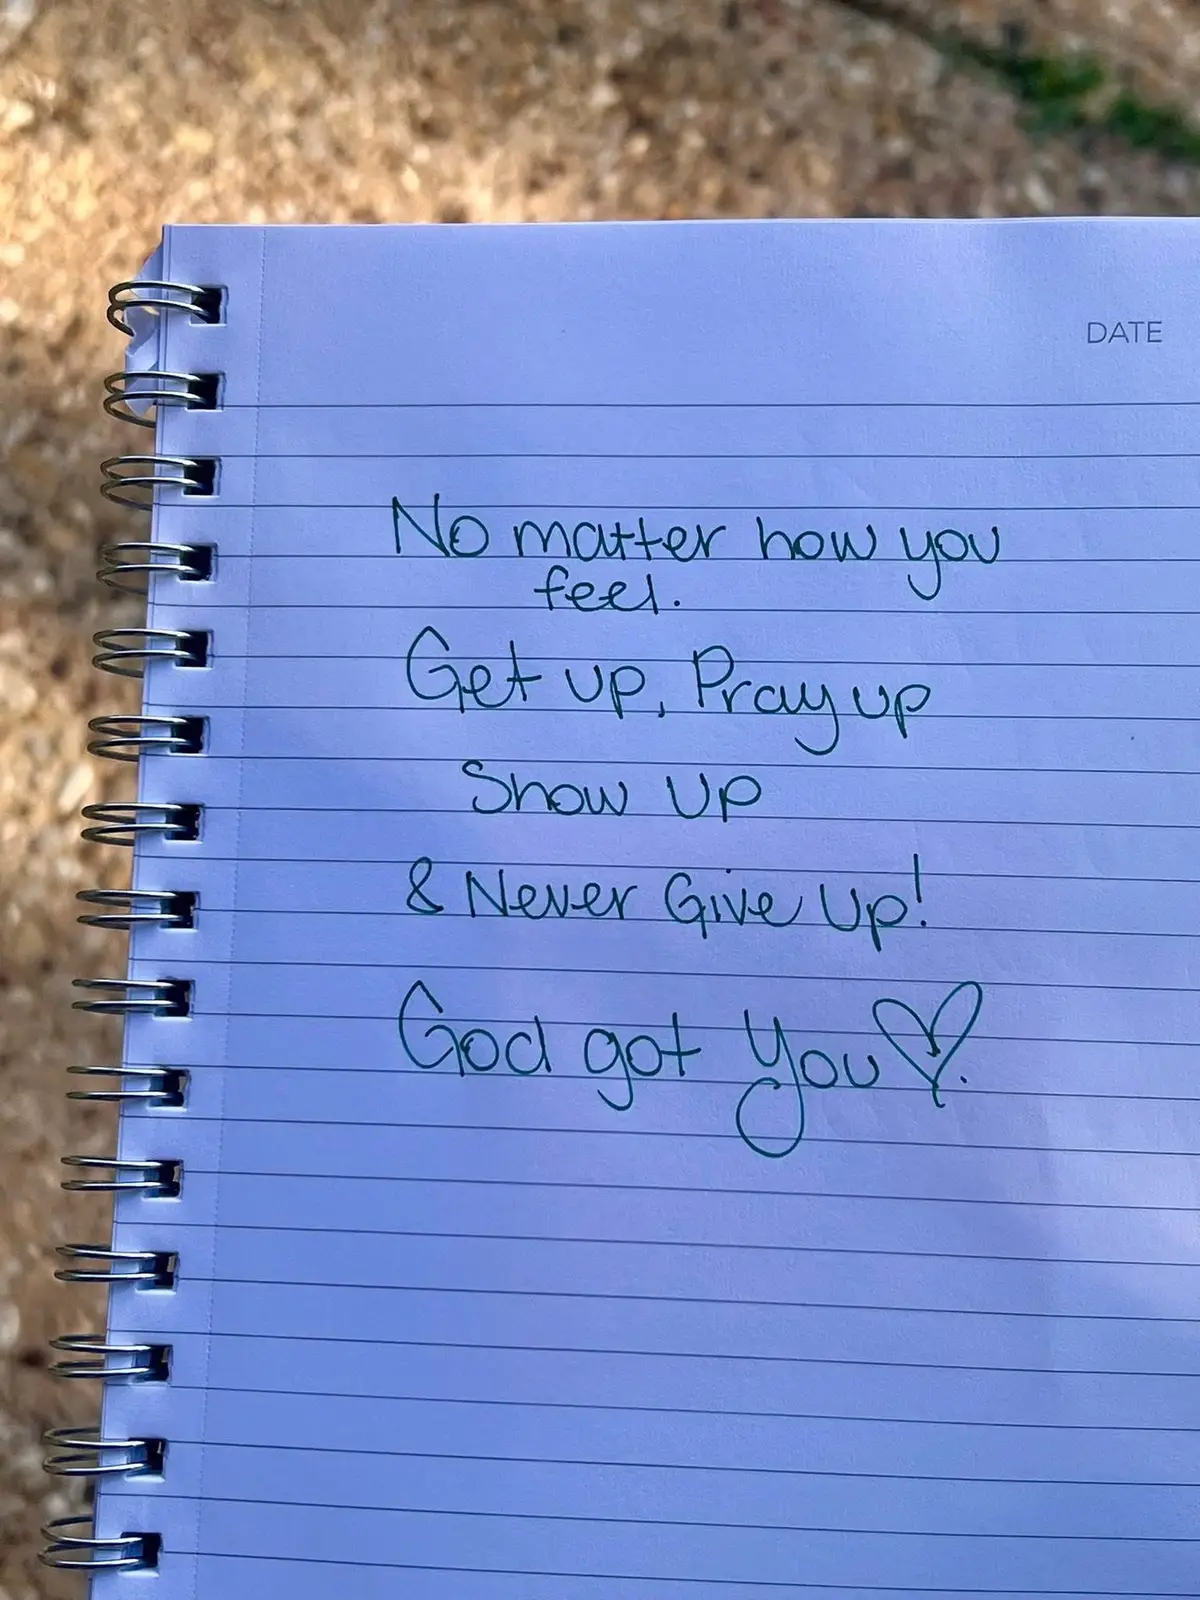 DATE
No matter how you
feel.
Get up, Pray up
Show Up
& Never Give Up!
God got You♡.